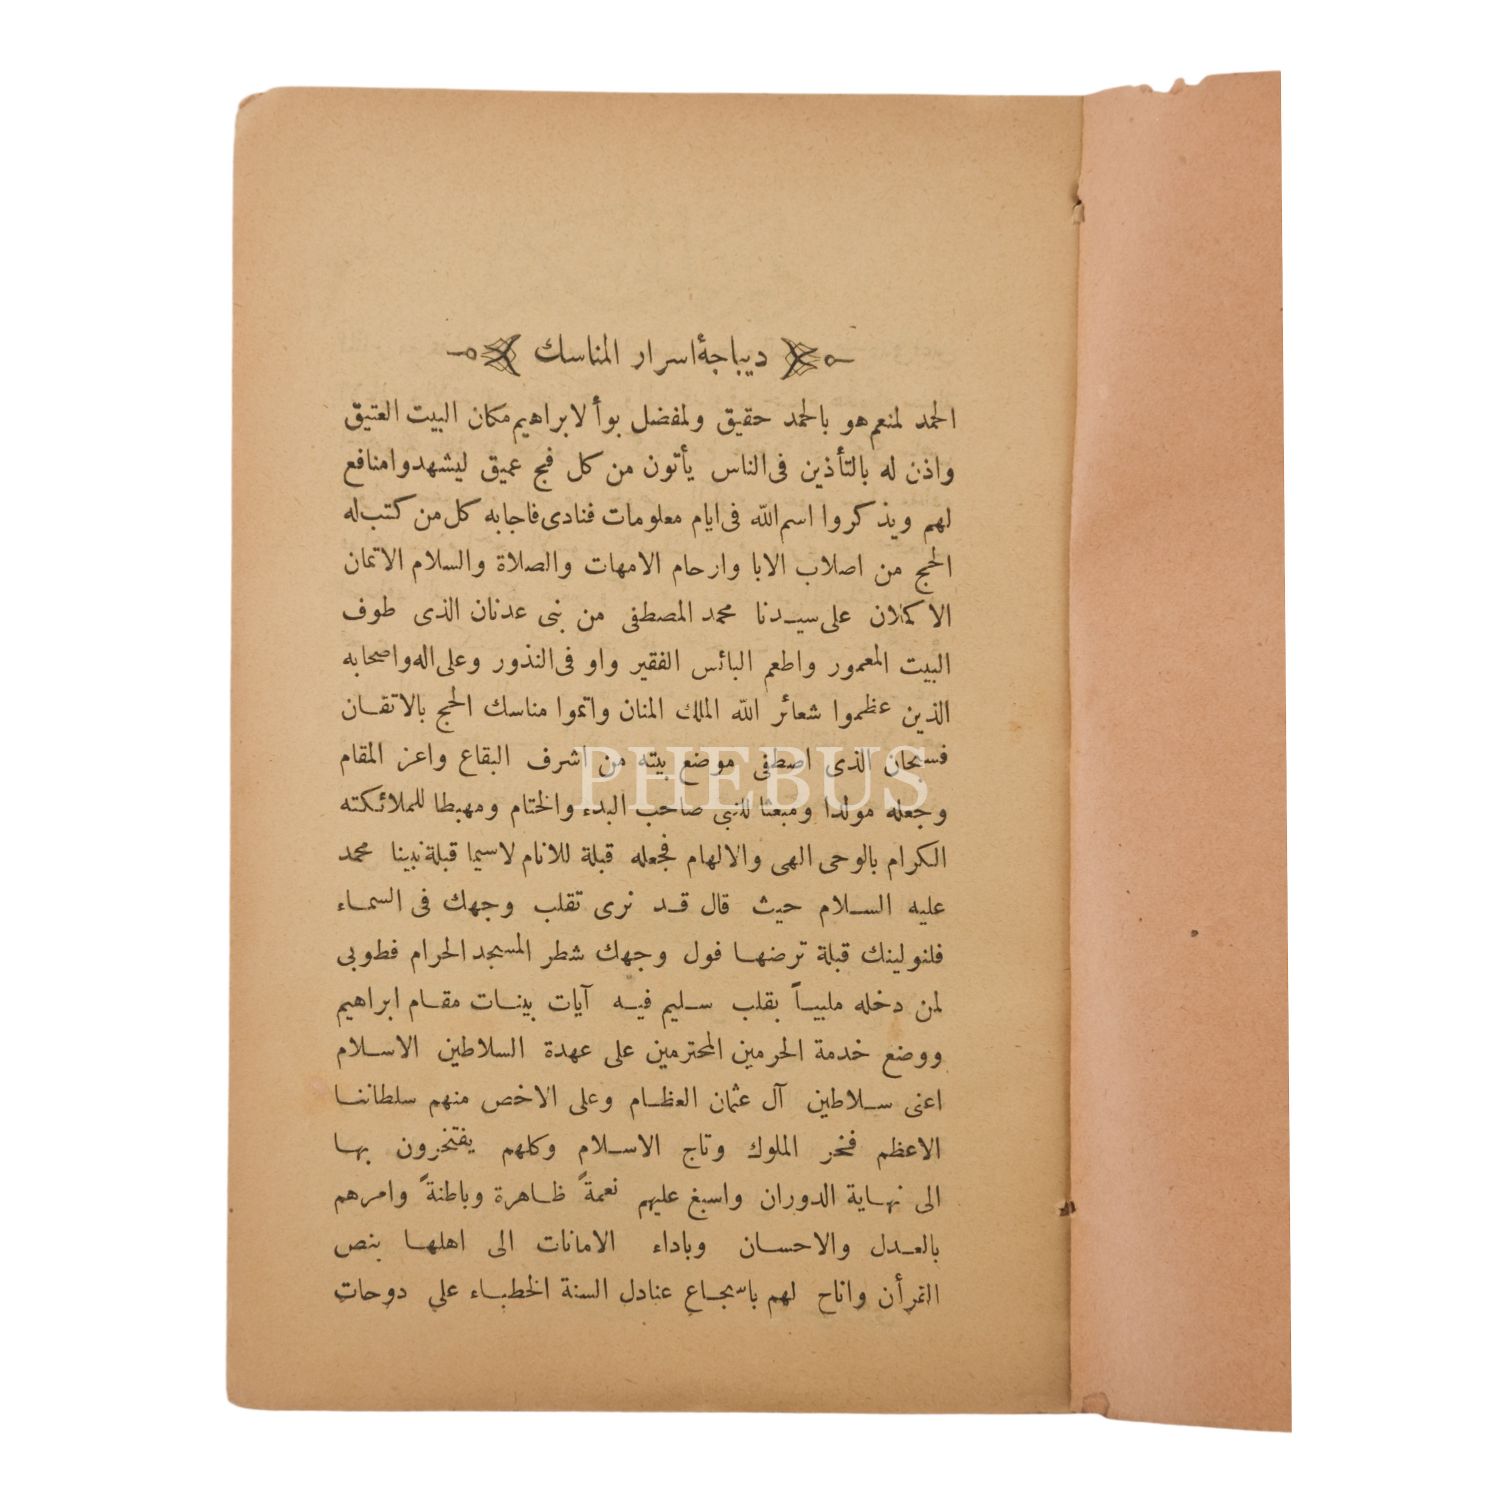 ديباجهٔ اسرار المناسك
الحمد لمنعم هو بالحمد حقيق ولمفضل بوأ لابراهيم مكان البيت العتيق
واذن له بالتأذين فى الناس يأتون من كل فج عميق ليشهدوا منافع
لهم ويذكروا اسم الله فى ايام معلومات فنادى فاجابه كل من كتب له
الحج من اصلاب الابا وارحام الامهات والصلاة والسلام الاتمان
الاكملان على سيدنا محمد المصطفى من بنى عدنان الذى طوف
البيت المعمور واطعم البائس الفقير واو فى النذور وعلى اله واصحابه
الذين عظموا شعائر الله الملك المنان واتموا مناسك الحج بالاتقان
فسبحان الذى اصطفى موضع بيته من اشرف البقاع واعز المقام
PHEBUS
وجعله مولدا ومبعثا للنبى صاحب البدء والختام ومهبطا للملائكته
الكرام بالوحى الهى والالهام فجعله قبلة للانام لاسيما قبلة نبينا محمد
عليه السلام حيث قال قد نرى تقلب وجهك فى السماء
فلنولينك قبلة ترضها فول وجهك شطر المسجد الحرام فطوبى
لمن دخله ملبياً بقلب سليم فيه آيات بينات مقام ابراهيم
ووضع خدمة الحرمين المحترمين على عهدة السلاطين الاسلام
اعنى سلاطين آل عثمان العظام وعلى الاخص منهم سلطاننا
الاعظم فخر الملوك وتاج الاسلام وكلهم يفتخرون بها
الى نهاية الدوران واسبغ عليهم نعمةً ظاهرة وباطنةً وامرهم
بالعدل والاحسان وباداء الامانات الى اهلها بنص
القرأن واناح لهم باسجاع عنادل السنة الخطباء على دوحات